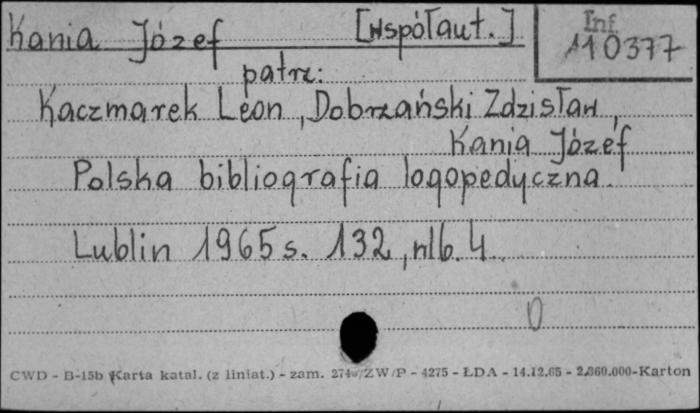 Kania Józef [współaut.]
Inf.
110377
patrz:
Kaczmarek Leon, Dobrzański Zdzisław,
Kania Józef
Polska bibliografia logopedyczna.
Lublin 1965 s. 132, nlb. 4
0
CWD - B-15b Karta katal. (z liniat.) - zam. ZW/P - 4275 - ŁDA - 14.12.65 - 2.360.000-Karton